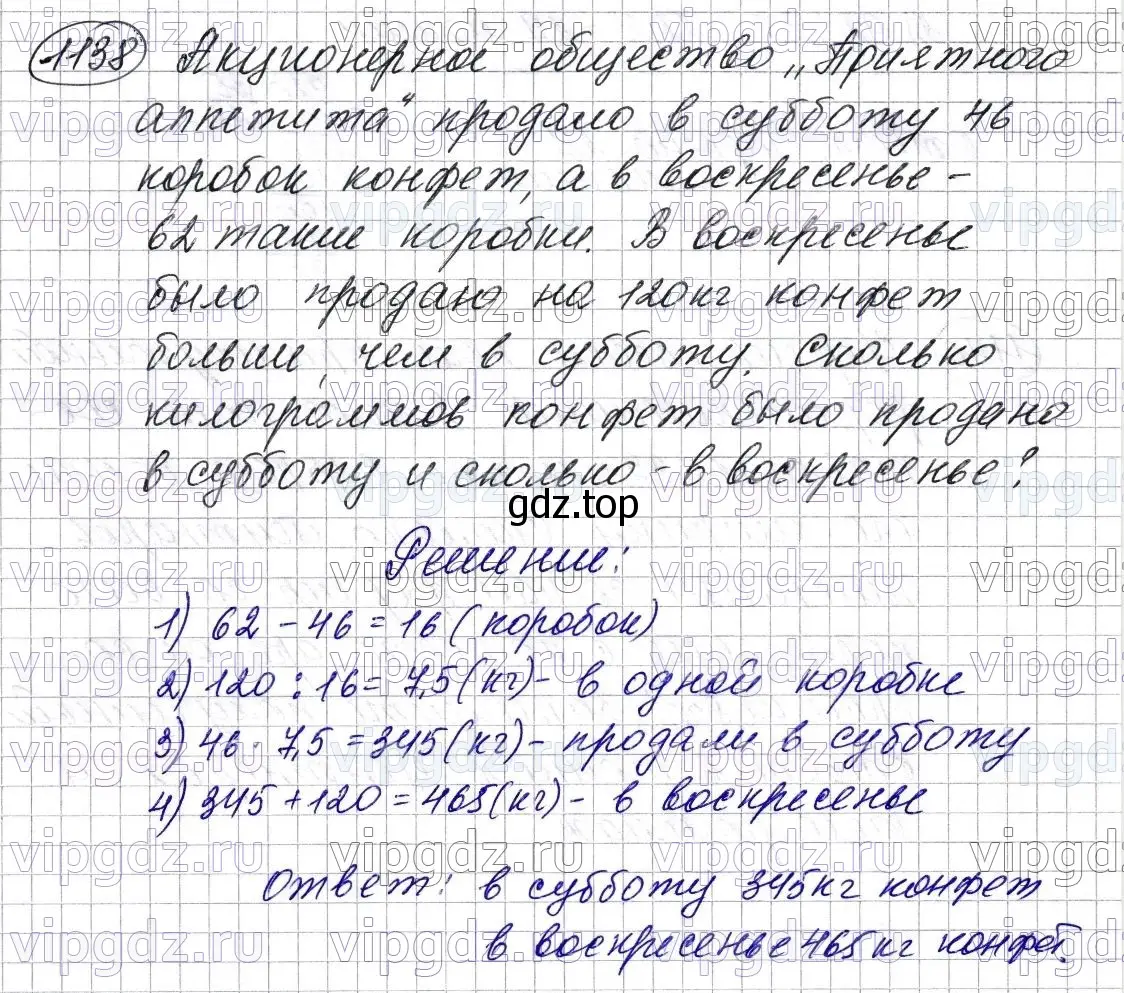 1138 Акционерное общество „Приятного
аппетита“ продало в субботу 46
коробок конфет, а в воскресенье -
62 такие коробки. В воскресенье
было продано на 120 кг конфет
больше, чем в субботу. Сколько
килограммов конфет было продано
в субботу и сколько - в воскресенье?
gdz.top
Решение:
1) 62 - 46 = 16 (коробок)
2) 120 : 16 = 7,5 (кг) - в одной коробке
3) 46 · 7,5 = 345 (кг) - продали в субботу
4) 345 + 120 = 465 (кг) - в воскресенье
Ответ: в субботу 345 кг конфет
в воскресенье 465 кг конфет.
vipgdz.ru